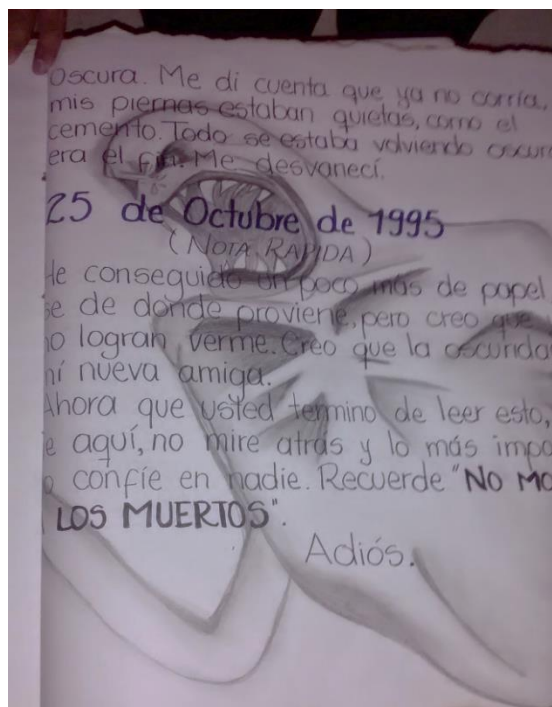 oscura. Me di cuenta que ya no corría,
mis piernas estaban quietas, como el
cemento. Todo se estaba volviendo oscuro
era el fin. Me desvanecí.
25 de Octubre de 1995
(NOTA RAPIDA)
He conseguido un poco más de papel
se de donde proviene, pero creo que
no logran verme. Creo que la oscuridad
mi nueva amiga.
Ahora que usted termino de leer esto,
e aquí, no mire atrás y lo más impo
o confíe en nadie. Recuerde "NO MO
LOS MUERTOS".
Adiós.